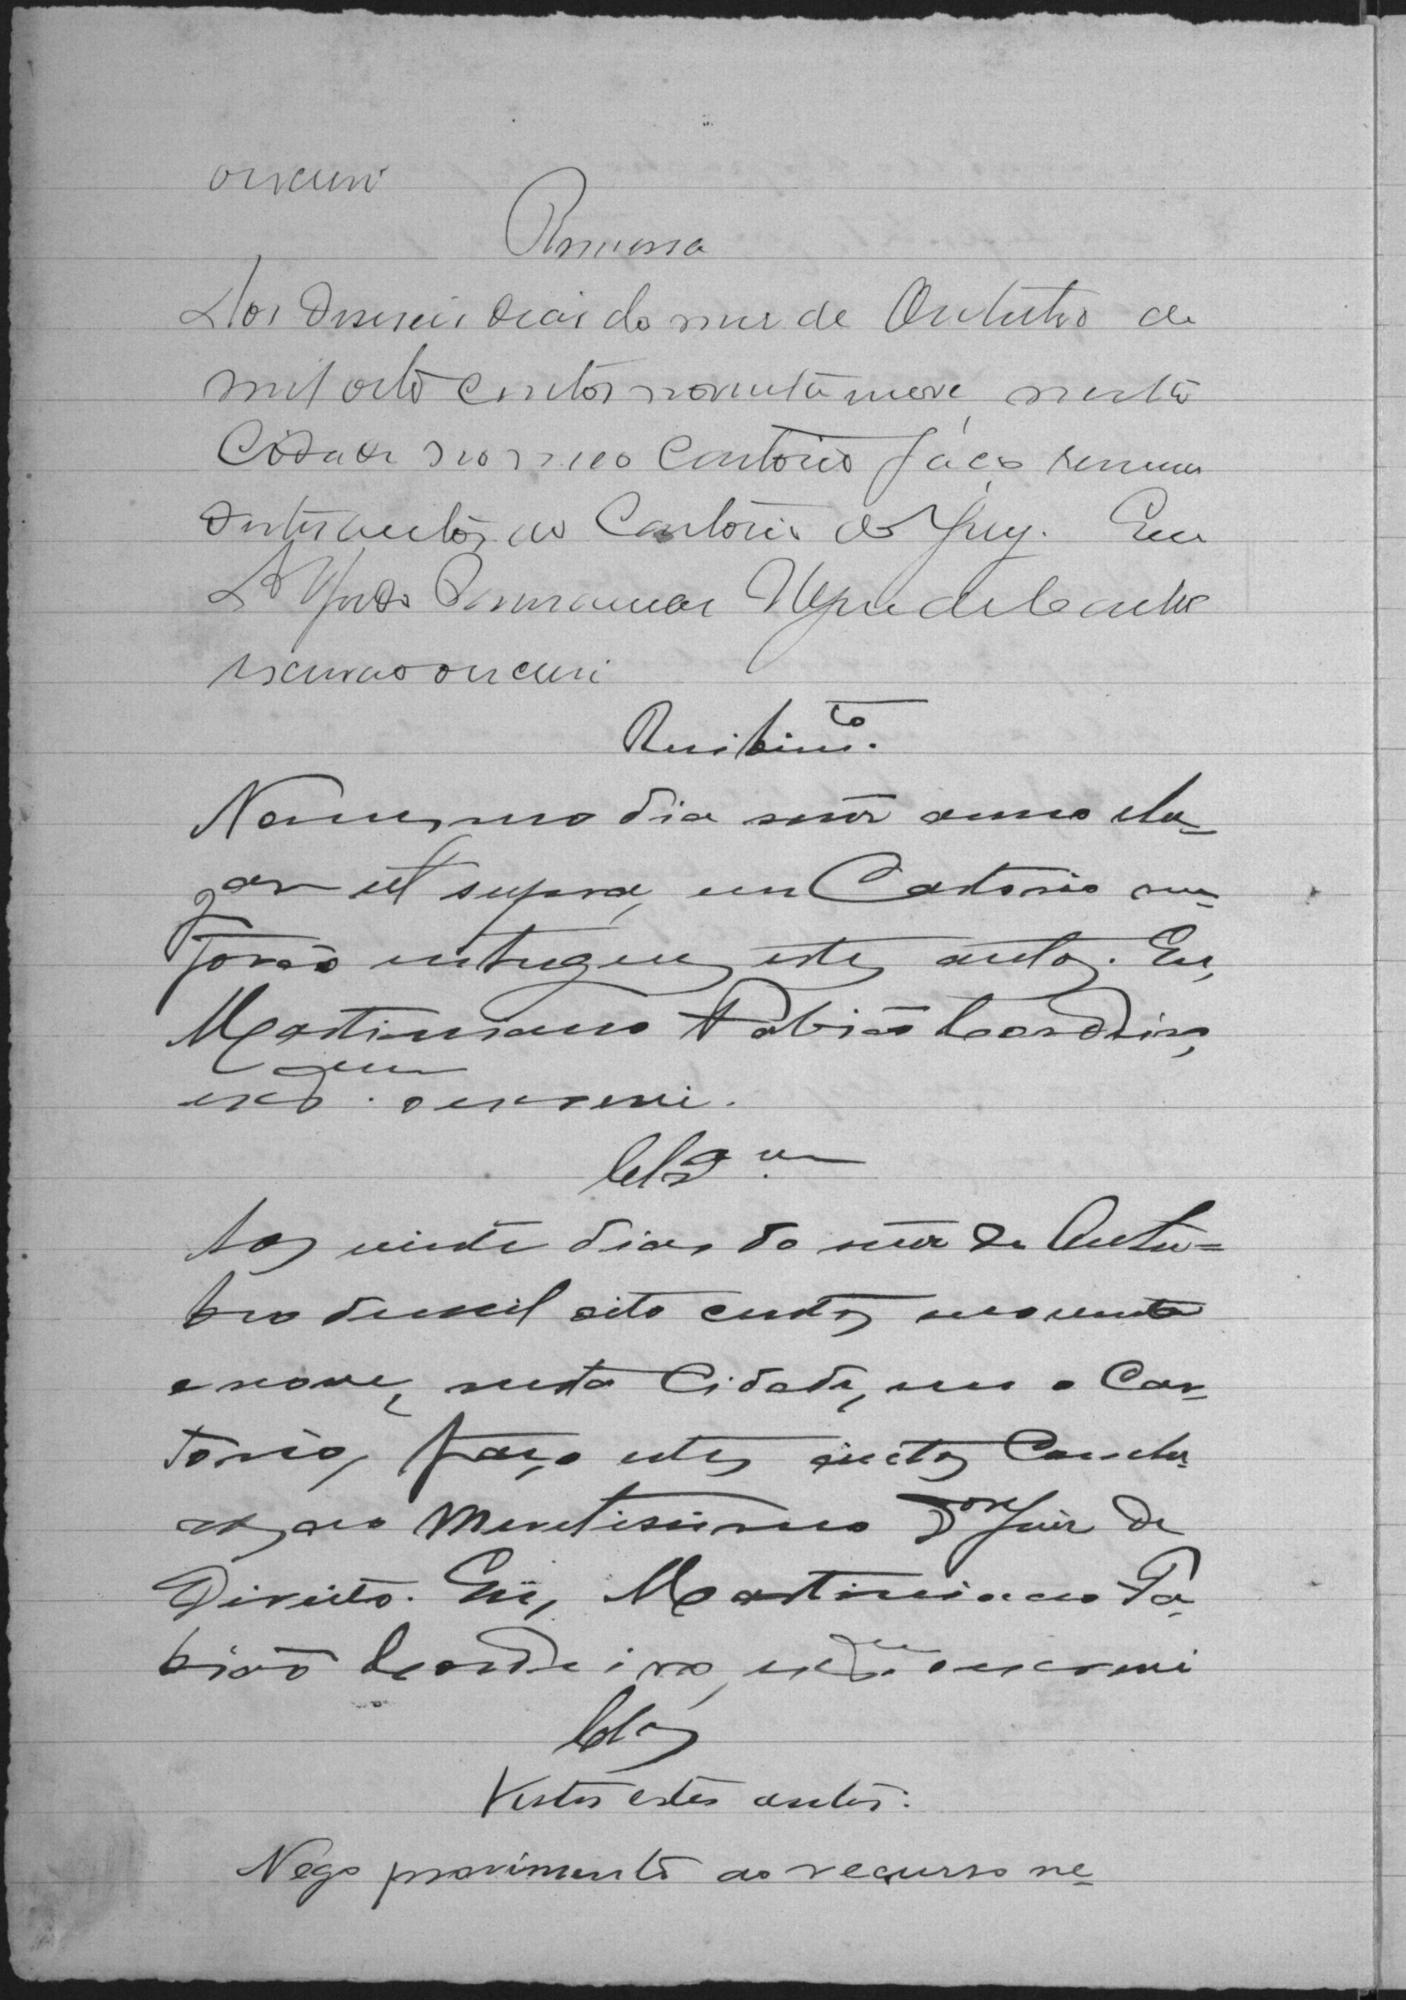 o escrevi
Remessa
Aos deseseis dias do mes de Outubro de
mil oito centos noventa e nove, nesta
Cidade no meo Cartorio faço remessa
destes autos ao Cartorio do Jury. Eu
Alfredo de Castro
escrivão o escrevi
Recibim.to
No mesmo dia mez anno e lu-
gar ut supra, em Cartorio me
forão entregues estes autos. Eu,
Martiniano Fabião Cordeiro,
escr.am o escrevi.
Cls.am
Aos vinte dias do mez de Outu=
bro de mil oito centos noventa
e nove, nesta Cidade, em o Car-
torio, faço estes autos Conclu-
sos ao Meretissimo Dor Juiz de
Direito. Eu, Martiniano Fa-
bião Cordeiro, escr.am o escrevi
Clos
Vistos estes autos:
Nego provimento ao recurso ne-